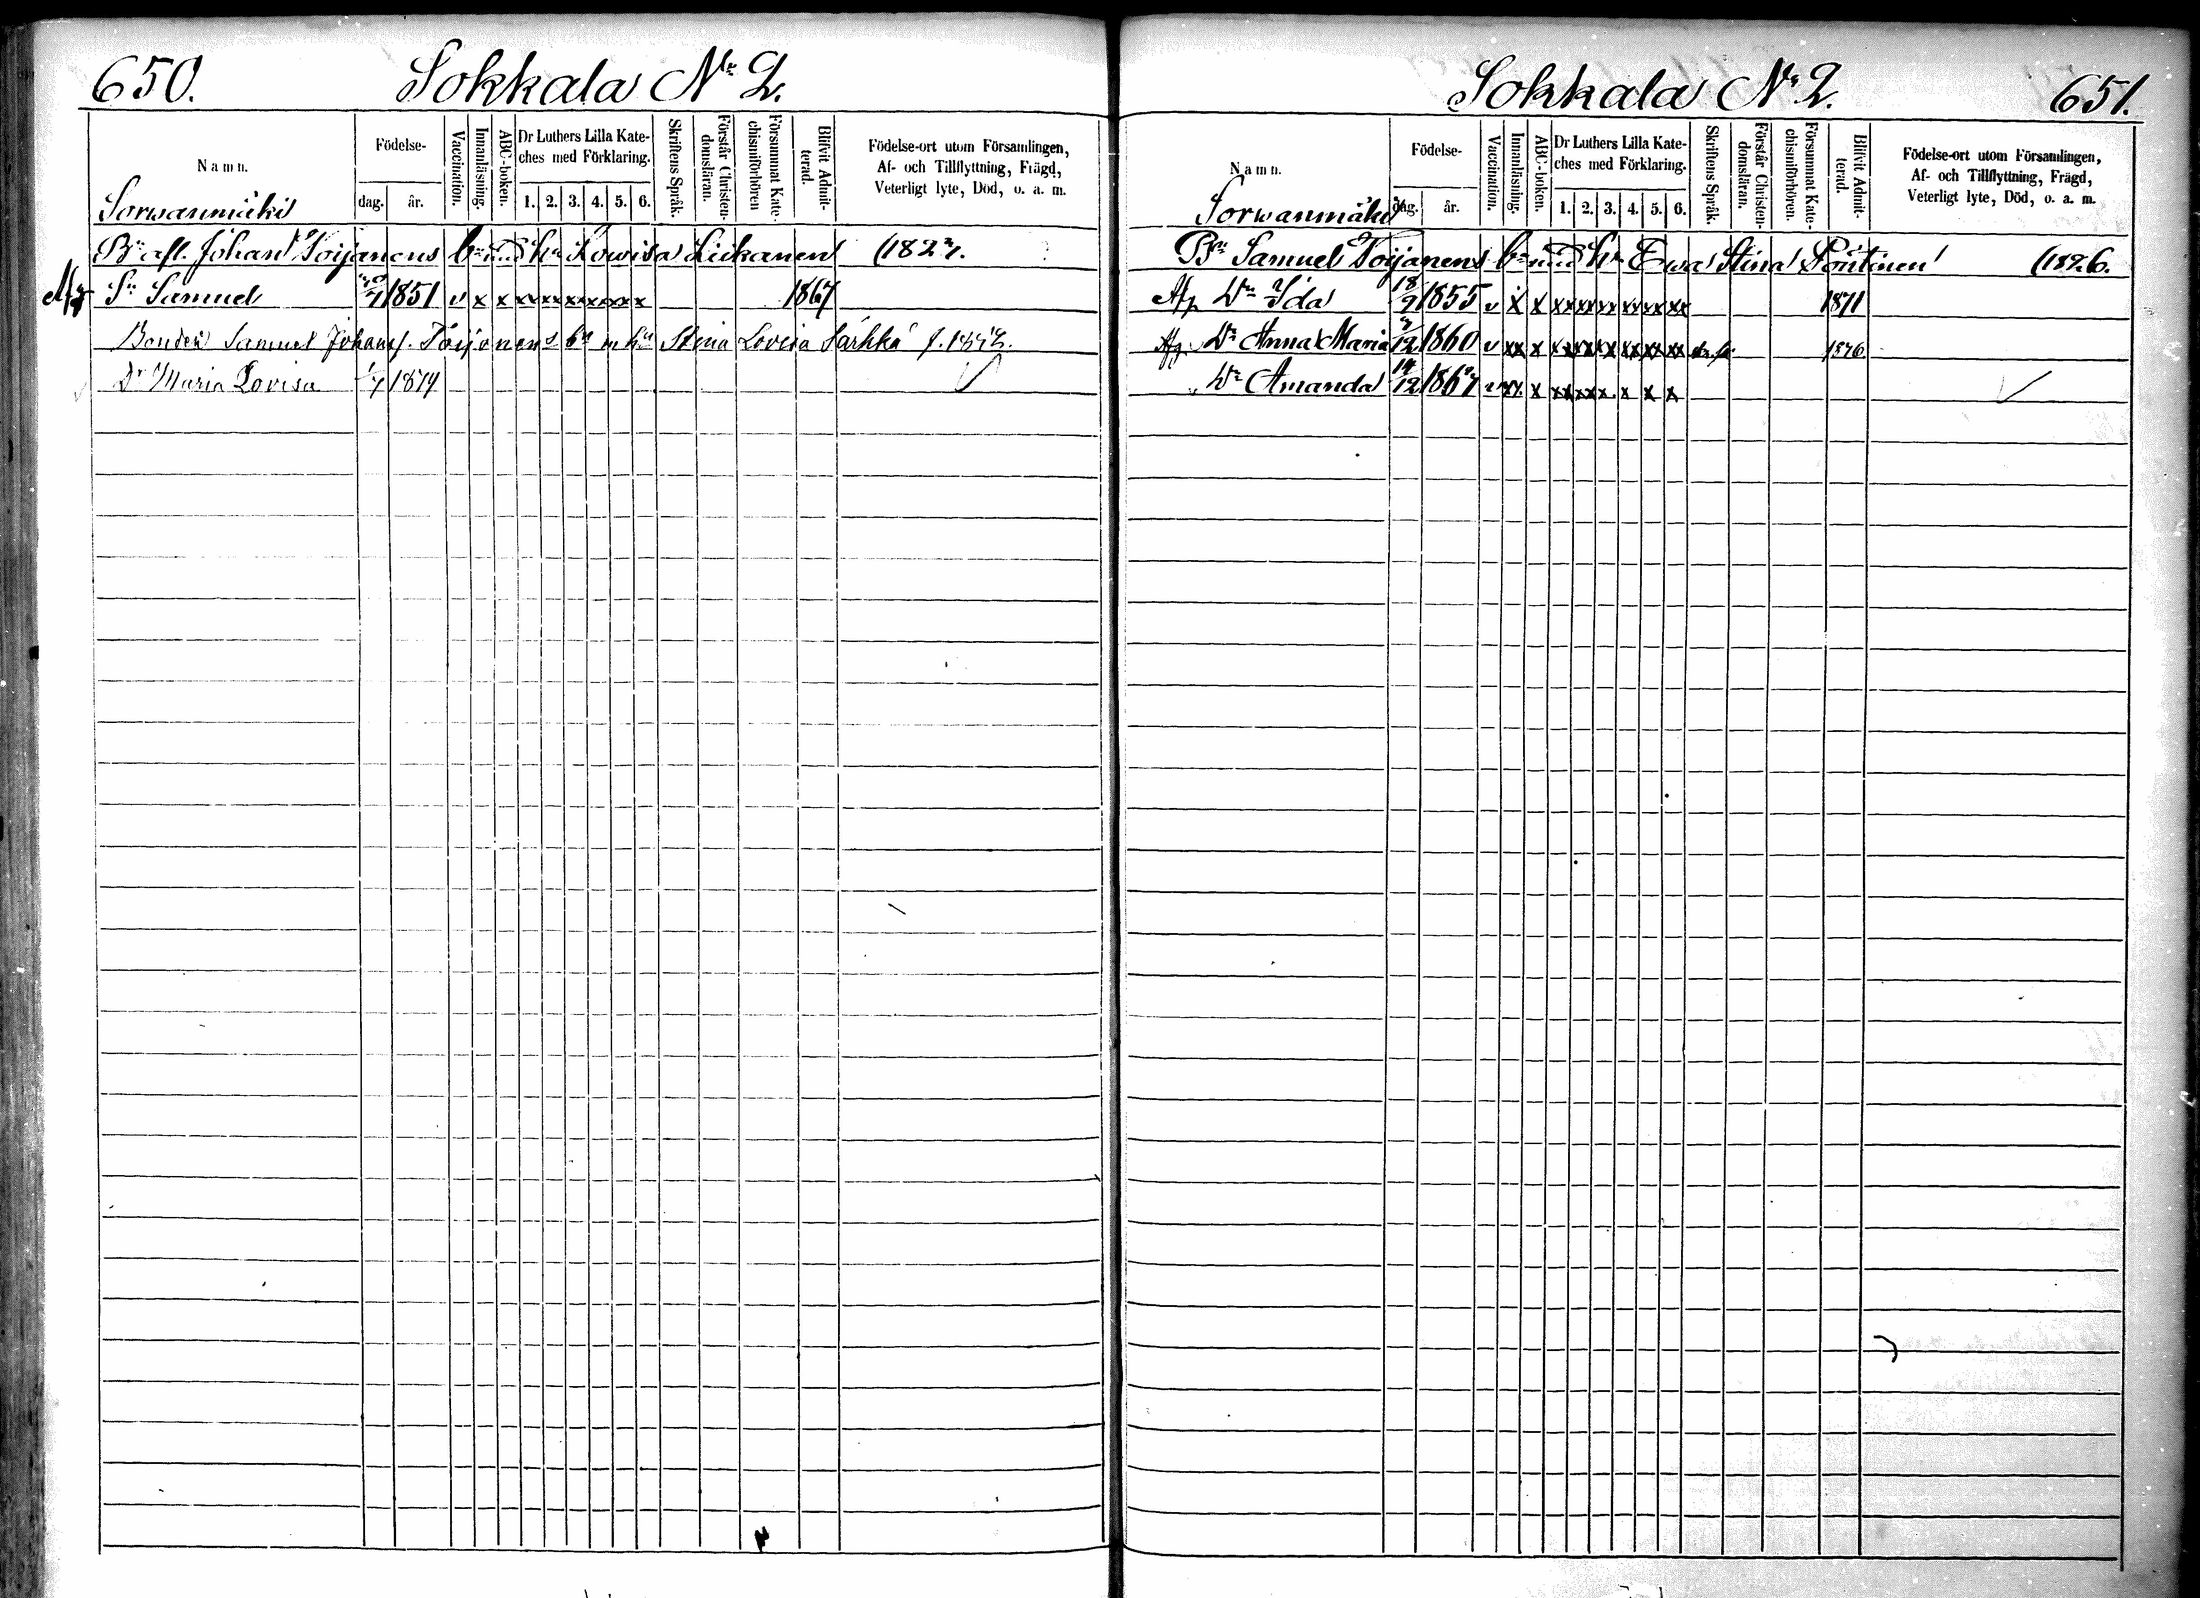 650. Sokkala No 2.
Namn.
Födelse-
dag.
år.
Vaccination.
Innanläsning.
ABC-boken.
Dr Luthers Lilla Kate-
ches med Förklaring.
1. 2. 3. 4. 5. 6.
Skriftens Språk.
Förstår Christen-
domsläran.
Försummat Kate-
chismiförhören
Blifvit Admit-
terad.
Födelse-ort utom Församlingen,
Af- och Tillflyttning, Frägd,
Veterligt lyte, Död, o. a. m.
Sorwanmäki
Bn afl. Johan Toijanens bn med hu Lowisa Liikanen (1827.
Sn Samuel 1851 v x x xx xx xx xx xx x 1867
Bonden Samuel Johanss. Toijonens bn m hu Stina Lovisa Särkkä
Dr Maria Lovisa 1/7 1874
Sokkala No 2. 651.
Namn.
Födelse-
dag.
år.
Vaccination.
Innanläsning.
ABC-boken.
Dr Luthers Lilla Kate-
ches med Förklaring.
1. 2. 3. 4. 5. 6.
Skriftens Språk.
Förstår Christen-
domsläran.
Försummat Kate-
chismiförhören.
Blifvit Admit-
terad.
Födelse-ort utom Församlingen,
Af- och Tillflyttning, Frägd,
Veterligt lyte, Död, o. a. m.
Sorwanmäki
Bn Samuel Toijanens bn med hu Ewa Stina Pöntinen (1826.
Afg Dr Ida 18/9 1855 v x x xx xx xx xx xx xx 1871
Afg. Dr Anna Maria 1860 v xx x xx xx xx xx xx xx 1876
Dr Amanda 14/12 1867 v xx x xx xx x x x x